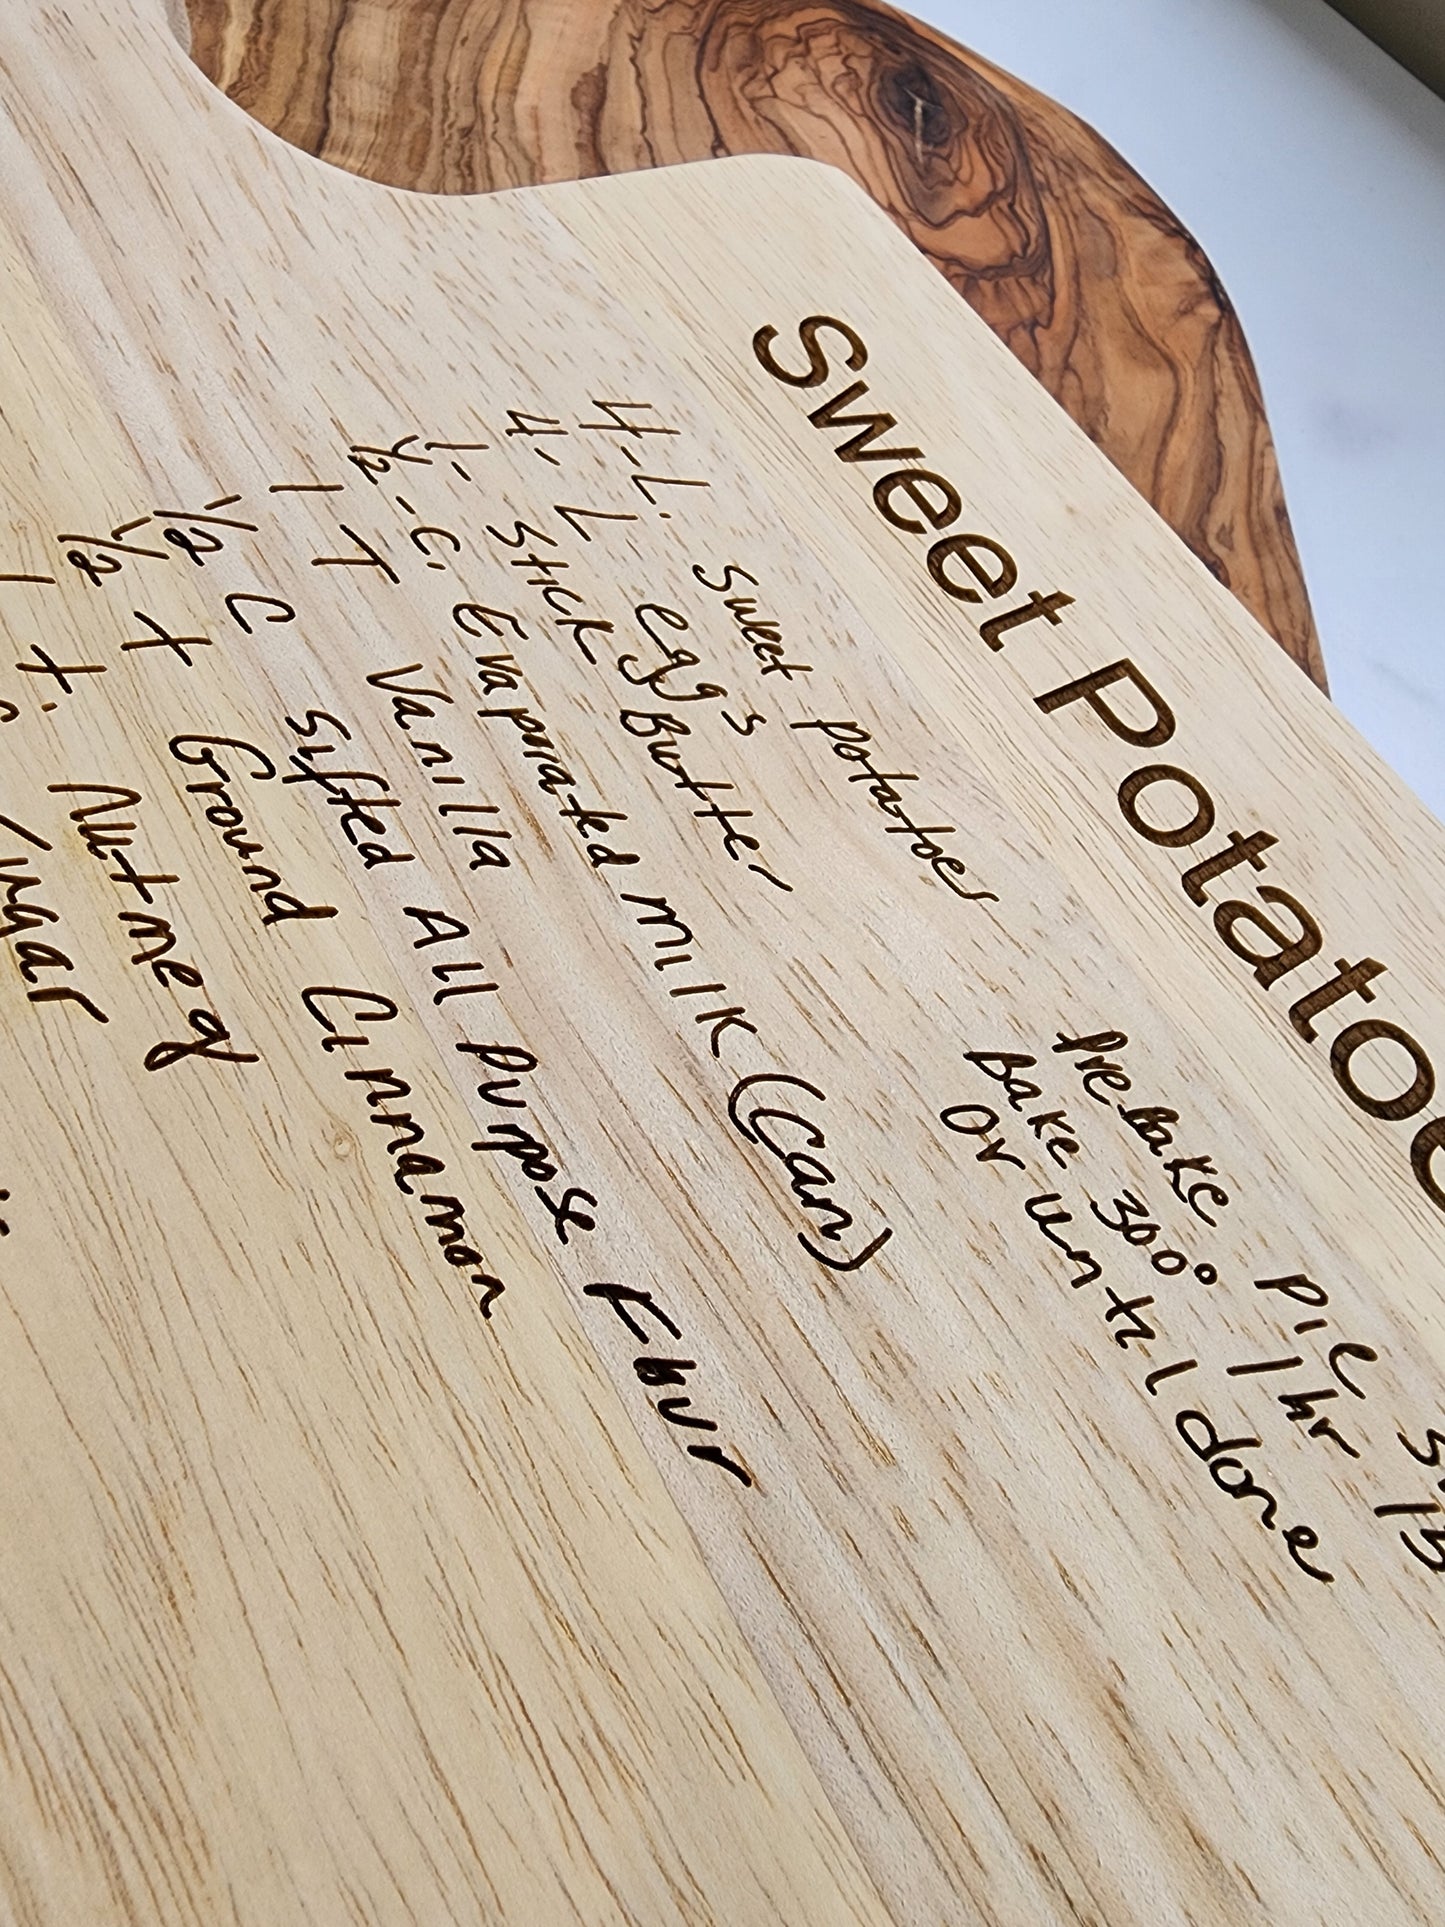 Sweet Potato
4-L. Sweet potatoes
4. L eggs
1- Stick Butter
1/2 -C. Evaporated milk (Can)
1 T Vanilla
1/2 C Sifted All Purpose Flour
1/2 t Ground Cinnamon
1 t. Nutmeg
Sugar
Pre Bake Pie
Bake 300° 1 hr 15
Or until done